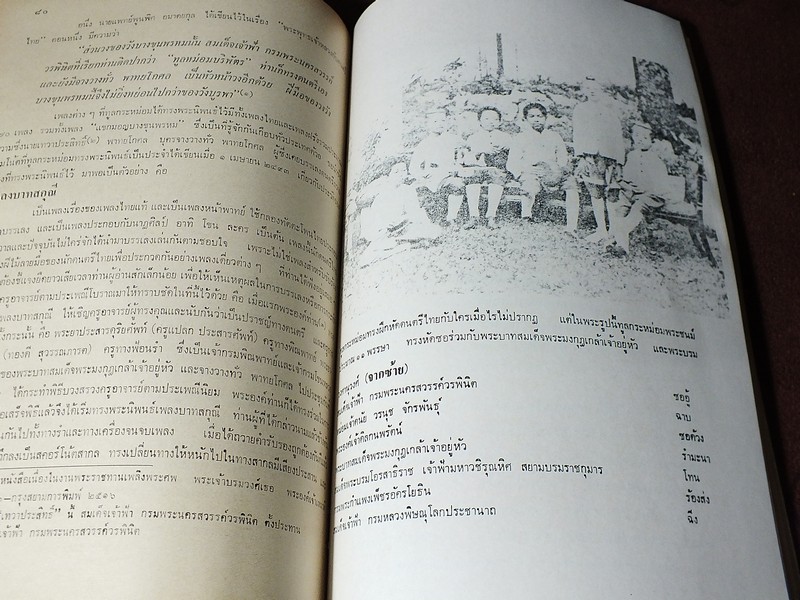 ๘๐
อนึ่ง นายแพทย์พูนพิศ อมาตยกุล ได้เขียนไว้ในเรื่อง "พระพุทธเจ้าหลวง
ไทย" ตอนหนึ่ง มีความว่า
"ส่วนวงของวังบางขุนพรหมนั้น สมเด็จเจ้าฟ้า กรมพระนครสวรรค์
วรพินิตที่เรียกท่านติดปากว่า "ทูลหม่อมบริพัตร" ท่านก็ทรงดนตรีเอง
และยังมีจางวางทั่ว พาทยโกศล เป็นหัวหน้าวงอีกด้วย ฝีมือของวงวัง
บางขุนพรหมนี้จึงไม่ยิ่งหย่อนไปกว่าของวังบูรพา"(๑)
เพลงต่าง ๆ ที่ทูลกระหม่อมได้ทรงพระนิพนธ์ไว้มีทั้งเพลงไทยและเพลงฝรั่ง
เพลง รวมทั้งเพลง "แขกมอญบางขุนพรหม" ซึ่งเป็นที่รู้จักกันเกือบทั่วประเทศด้วย
ความซึ่งนายเทวาประสิทธิ์(๒) พาทยโกศล บุตรจางวางทั่ว พาทยโกศล ผู้ซึ่งเคย
ได้ที่ทูลกระหม่อมทรงพระนิพนธ์เป็นประจำได้เขียนเมื่อ ๑ เมษายน ๒๔๙๓ เกี่ยวกับ
ที่ทรงพระนิพนธ์ไว้ มาพอเป็นตัวอย่าง คือ
ลงบาทสกุณี
เป็นเพลงเรื่องของเพลงไทยแท้ และเป็นเพลงหน้าพาทย์ ใช้กลองทัดตะโพนไทย
บรรเลง และเป็นประกอบกับนาฏศิลป์ อาทิ โขน ละคร เป็นต้น เพลงนี้นัก
และปัจจุบันไม่ใคร่จักได้นำมาบรรเลงเล่นกันตามชอบใจ เพราะไม่ใช่เพลงสำหรับ
ฝีไม้ลายมือของนักดนตรีไทยเพื่อประกวดกันอย่างเพลงเดี่ยวต่าง ๆ ที่ท่านได้
ต้องชี้แจงยืดยาวเสียเวลาท่านผู้อ่านสักเล็กน้อย เพื่อให้เห็นเหตุผลในการบรรเลงหรือ
ครูอาจารย์ตามประเพณีโบราณมาให้ทราบชัดในที่นี้ไว้ด้วย คือ เมื่อแรกพระองค์ท่าน
เพลงบาทสกุณี ให้เชิญครูอาจารย์ผู้ทรงคุณและนับกันว่าเป็นปราชญ์ทางดนตรี และ
ครั้งกระนั้น คือ พระยาประสานดุริยศัพท์ (ครูแปลก ประสานศัพท์) ครูทางพิณพาทย์
(ทองดี สุวรรณภารต) ครูทางฟ้อนรำ ซึ่งเป็นเจ้ากรมพิณพาทย์และเจ้ากรมโขน
ของพระบาทสมเด็จพระมงกุฎเกล้าเจ้าอยู่หัว และจางวางทั่ว พาทยโกศล
ได้กระทำพิธีบวงสรวงครูอาจารย์ตามประเพณีนิยม พระองค์ท่านก็ได้ทรง
เสร็จพิธีแล้วจึงได้เริ่มทรงพระนิพนธ์เพลงบาทสกุณี ท่านผู้ที่ได้กล่าวนาม
กันไปทั้งทางรำและทางเครื่องจนจบเพลง เมื่อได้ถวายคำรับรองถูกต้อง
ก็ลงเป็นสคอร์โน้ตสากล ทรงเปลี่ยนทางให้หนักไปในทางสากลมีเสียงประสาน
หนังสือเนื่องในงานพระราชทานเพลิงพระศพ พระเจ้าบรมวงศ์เธอ พระองค์เจ้า
กรุงสยามการพิมพ์ ๒๕๑๖
"เทวาประสิทธิ์" นี้ สมเด็จเจ้าฟ้า กรมพระนครสวรรค์วรพินิต ตั้งประทาน
เจ้าฟ้า กรมพระนครสวรรค์วรพินิต
ทูลกระหม่อมทรงฝึกหัดดนตรีไทยกับใครเมื่อไรไม่ปรากฏ แต่ในพระรูปนี้ทูลกระหม่อมพระชนม์
ประมาณ ๑๑ พรรษา ทรงหัดซอร่วมกับพระบาทสมเด็จพระมงกุฎเกล้าเจ้าอยู่หัว และพระบรม
วงศานุวงศ์ (จากซ้าย)
สมเด็จเจ้าฟ้า กรมพระนครสวรรค์วรพินิต ซออู้
หม่อมเจ้าดนัย วรนุช จักรพันธุ์ ฉาบ
พระองค์เจ้าดิลกนพรัตน์ ซอด้วง
พระบาทสมเด็จพระมงกุฎเกล้าเจ้าอยู่หัว รำมะนา
สมเด็จพระบรมโอรสาธิราช เจ้าฟ้ามหาวชิรุณหิศ สยามบรมราชกุมาร โทน
กรมพระกำแพงเพ็ชรอัครโยธิน ร้องส่ง
สมเด็จเจ้าฟ้า กรมหลวงพิษณุโลกประชานาถ ฉิ่ง